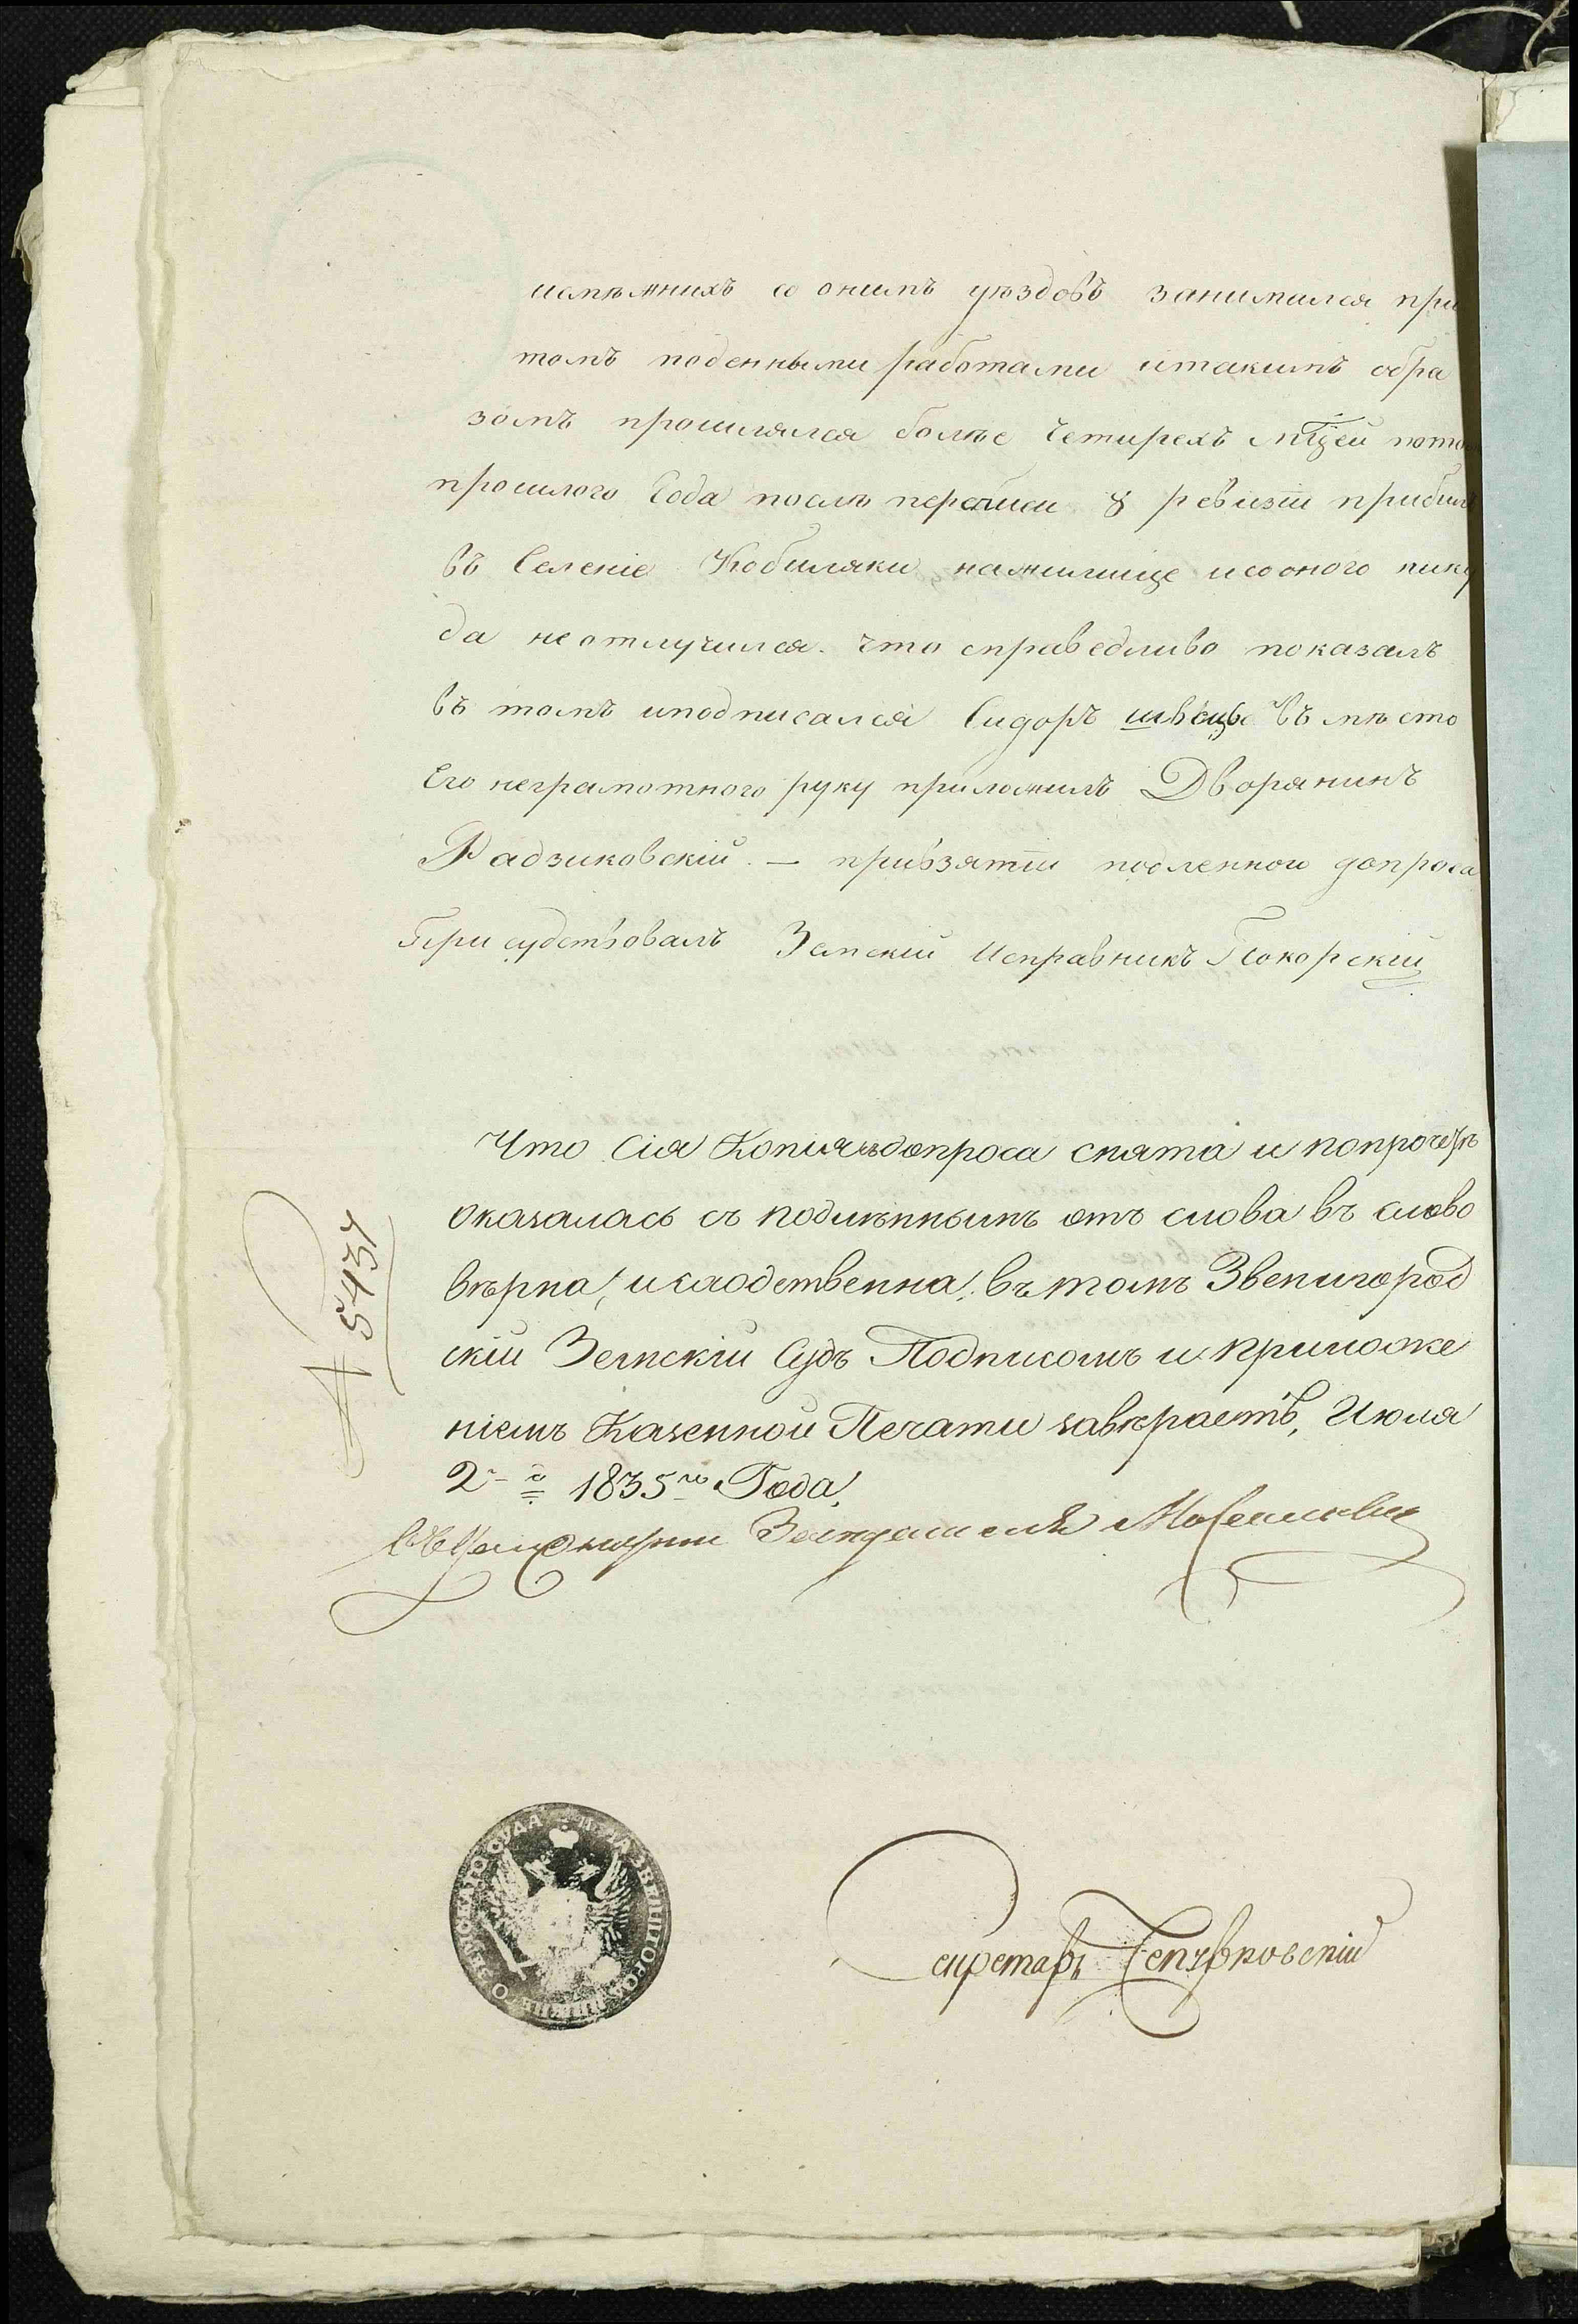 исмѣжнихъ со онимъ уѣздовъ занимался при
томъ поденными работами итакимъ обра
зомъ прошлялся более четирехъ мцей пото
прошлого года после переписи 8 ревизіи прибил
въ Селеніе Кобиляки нажилище исооного нику
да неотлучился. что справедливо показалъ
въ томъ иподписался Сидоръ швецъ въ мѣсто
Его неграмотного руку приложилъ Дворянинъ
Радзиковскій. — привзятіи подленного допроса
Присудствовалъ Земскій Исправникъ Покорскій
Что Сія Копія съдопроса снята и попрочетѣ
оказалась съ подлѣннымъ отъ слова въ слово
вѣрна, исходственна, въ томъ Звенигород
скій Земскій Судъ Подписомъ и приложе
ніемъ Казенной Печати завѣраетъ, Июля
2-го 1835го Года,
Засѣдатель
№ 5434
Секретарь
ЗВЕНИГОРОД ЗЕМСКАГО СУДА